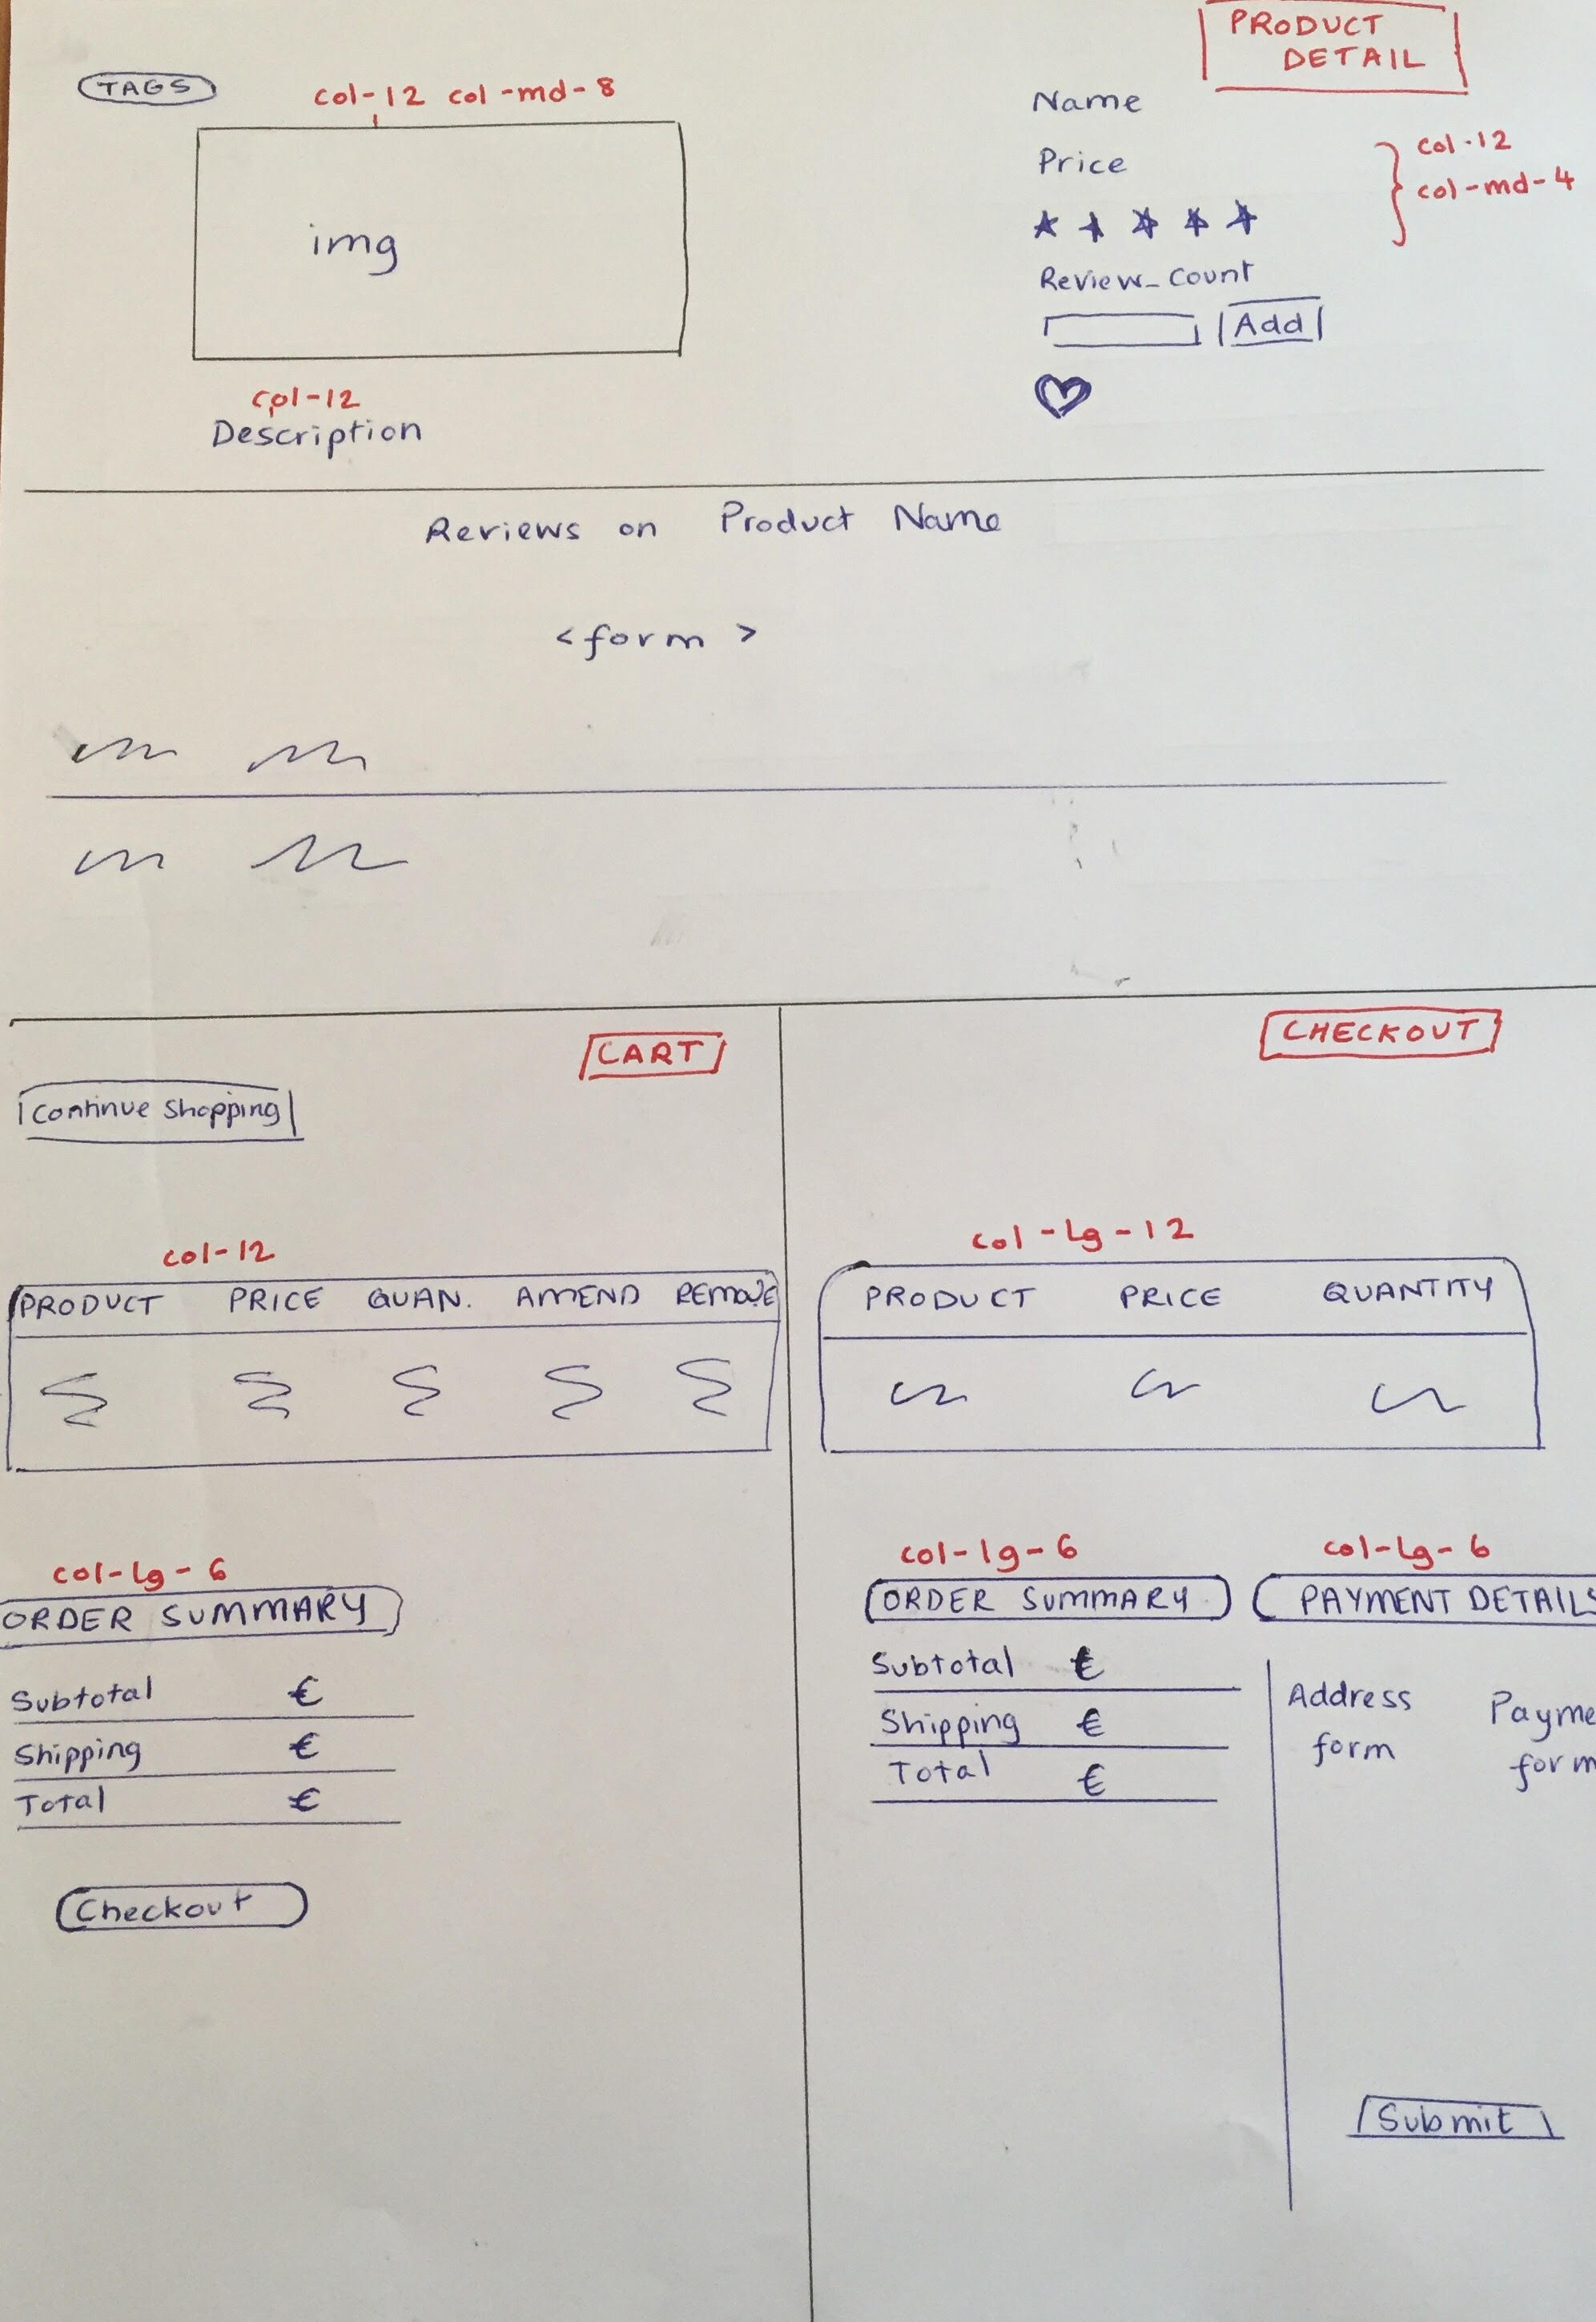 PRODUCT
DETAIL
TAGS
col-12 col-md-8
img
col-12
Description
Name
Price
col-12
col-md-4
Review_Count
Add
Reviews on Product Name
<form>
CART
Continue Shopping
col-12
PRODUCT PRICE QUAN. AMEND REMOVE
col-lg-6
ORDER SUMMARY
Subtotal €
Shipping €
Total €
Checkout
CHECKOUT
col-lg-12
PRODUCT PRICE QUANTITY
col-lg-6
ORDER SUMMARY
Subtotal €
Shipping €
Total €
col-lg-6
PAYMENT DETAILS
Address
form
Payme
form
Submit